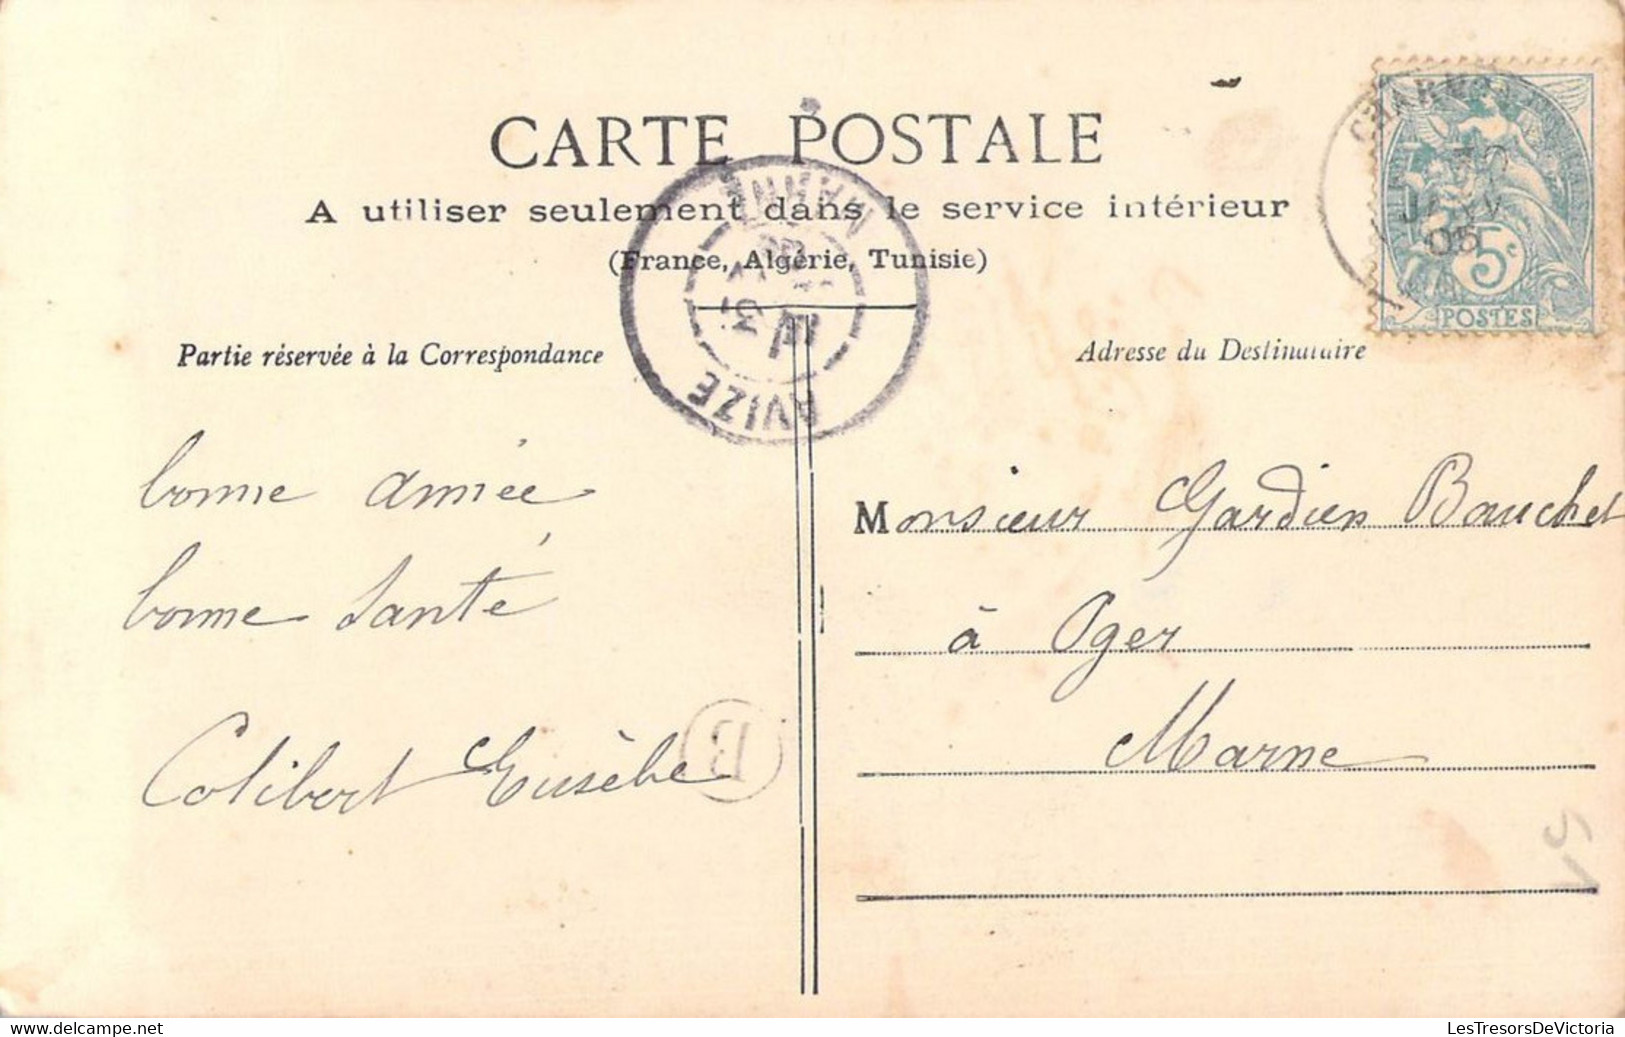 CARTE POSTALE
A utiliser seulement dans le service intérieur
(France, Algérie, Tunisie)
MARNE
31
AVIZE
JANV
05
5c
POSTES
Partie réservée à la Correspondance
Adresse du Destinataire
bonne année
bonne Santé
Colibert Eusèbe
B
Monsieur Gardien Bauchet
à Oger
Marne
www.delcampe.net
LesTresorsDeVictoria